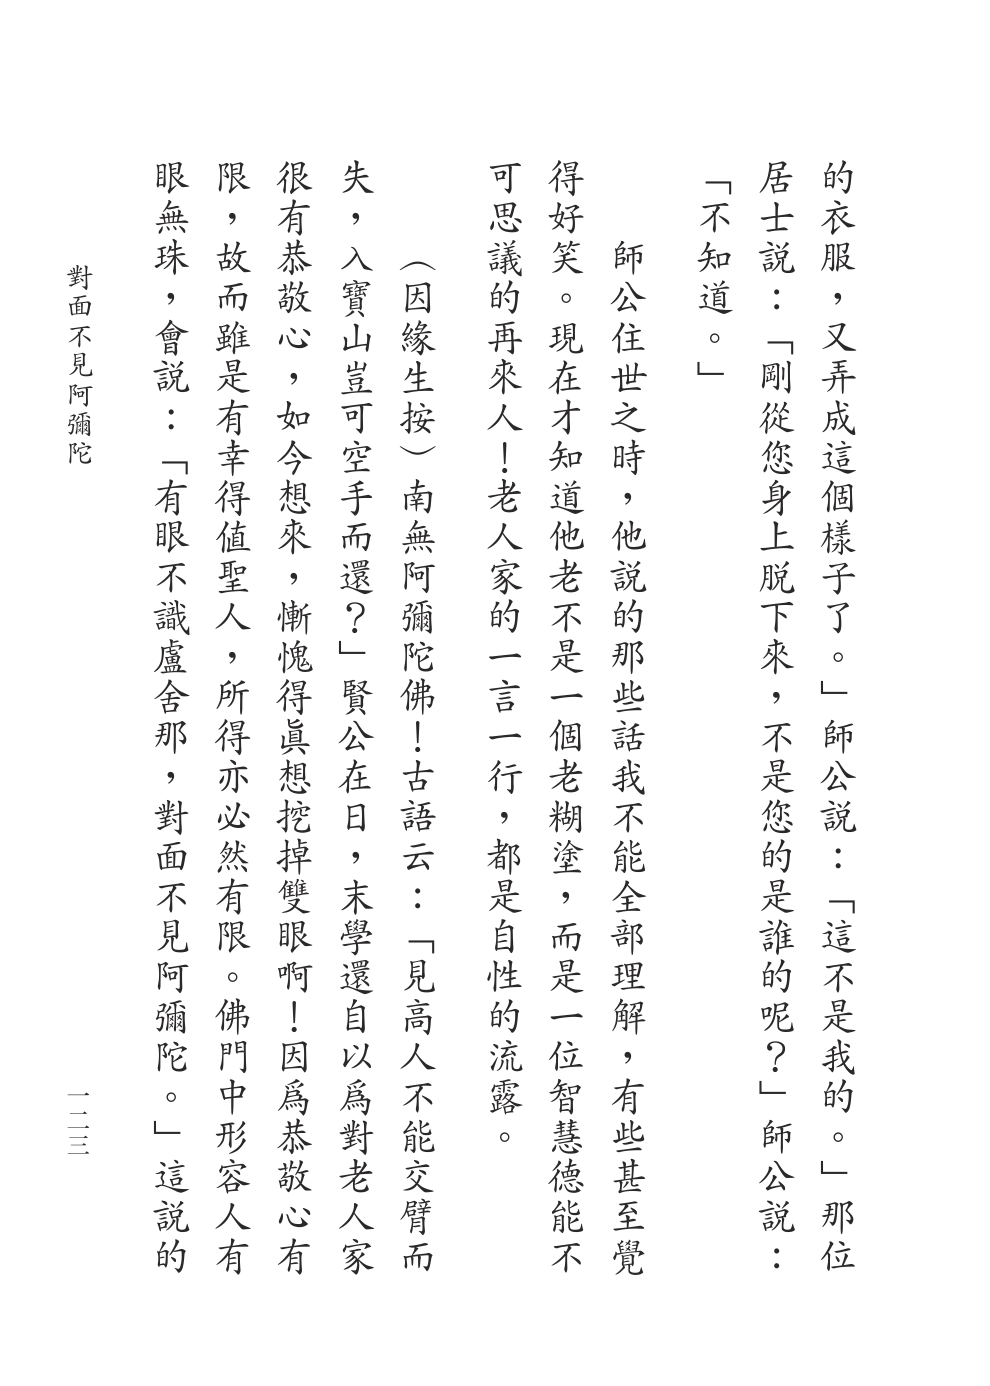 的衣服，又弄成這個樣子了。」師公説：「這不是我的。」那位
居士説：「剛從您身上脱下來，不是您的是誰的呢？」師公説：
「不知道。」
師公住世之時，他説的那些話我不能全部理解，有些甚至覺
得好笑。現在才知道他老不是一個老糊塗，而是一位智慧德能不
可思議的再來人！老人家的一言一行，都是自性的流露。
（因緣生按）南無阿彌陀佛！古語云：「見高人不能交臂而
失，入寶山豈可空手而還？」賢公在日，末學還自以爲對老人家
很有恭敬心，如今想來，慚愧得眞想挖掉雙眼啊！因爲恭敬心有
限，故而雖是有幸得値聖人，所得亦必然有限。佛門中形容人有
眼無珠，會説：「有眼不識盧舍那，對面不見阿彌陀。」這説的
對面不見阿彌陀
一二三